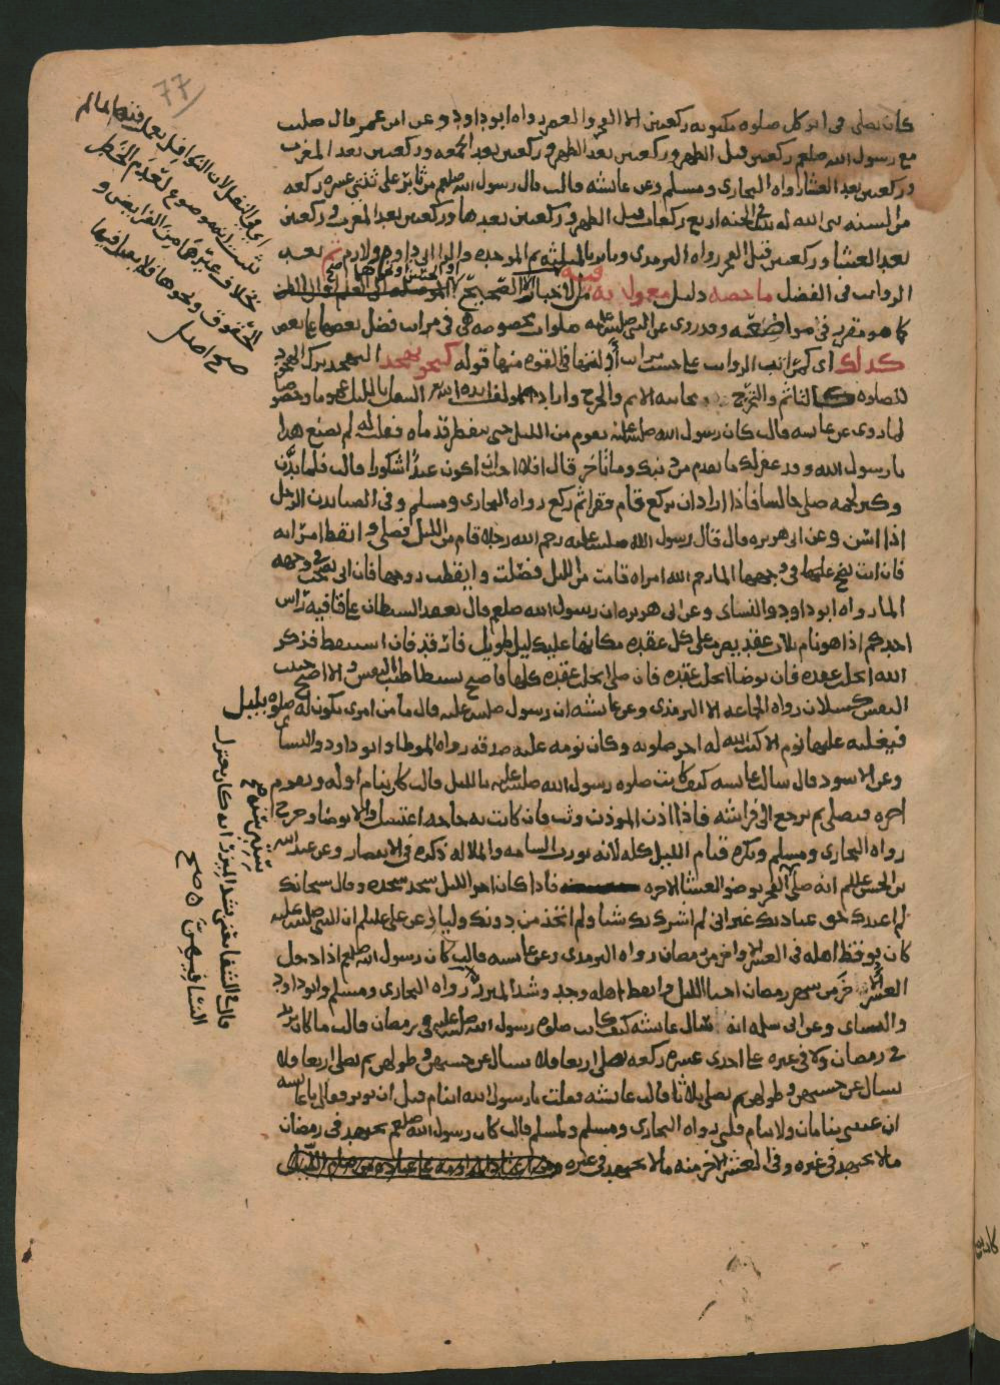 77
كان يصلى فى اثر كل صلوة مكتوبة ركعتين الا الفجر والعصر رواه ابو داود وعن ابن عمر قال صليت
مع رسول الله صلعم ركعتين قبل الظهر وركعتين بعد الظهر وركعتين بعد الجمعه وركعتين بعد المغرب
وركعتين بعد العشا رواه البخارى ومسلم وعن عائشه قالت قال رسول الله صلعم من ثابر على ثنتي عشره ركعه
من السنه بنى الله له بيتا فى الجنه اربع ركعات قبل الظهر وركعتين بعدها وركعتين بعد المغرب وركعتين
بعد العشا وركعتين قبل الفجر رواه الترمذى
الرواتب فى الفضل ما خصه دليل معمول به فيه من الاخبار الصحيحه
كما هو مقرر فى مواضعه وقد روى عن النبى صلوات مخصوصه هى فى مراتب فضل بعضها على بعض
كذلك اى كمراتب الرواتب على حسب مراتب ادلتها فى القوه منها قوله كنحو تهجد التهجد ترك الهجود
للصلاه كالتاثم والتحرج مجانبه الاثم والحرج
لما روى عن عائشه قالت كان رسول الله صلى الله عليه يقوم من الليل حتى تتفطر قدماه فقلت له لم تصنع هذا
يا رسول الله وقد غفر لك ما تقدم من ذنبك وما تاخر قال افلا احب ان اكون عبدا شكورا قالت فلما بدن
وكثر لحمه صلى جالسا فاذا اراد ان يركع قام فقرا ثم ركع رواه البخارى ومسلم وفى الضيا بدن الرجل
اذا اسن وعن ابى هريره قال قال رسول الله صلى الله عليه رحم الله رجلا قام من الليل فصلى وايقظ امراته
فان ابت نضح عليها فى وجهها الما رحم الله امراه قامت من الليل فصلت وايقظت زوجها فان ابى نضحت فى وجهه
الما رواه ابو داود والنساى وعن ابى هريره ان رسول الله صلعم قال يعقد الشيطان على قافية راس
احدكم اذا هو نام ثلاث عقد يضرب على كل عقده مكانها عليك ليل طويل فارقد فان استيقظ فذكر
الله انحلت عقده فان توضا انحلت عقده فان صلى انحلت عقده كلها فاصبح نشيطا طيب النفس والا اصبح خبيث
النفس كسلان رواه الجماعه الا الترمذى وعن عائشه ان رسول الله صلى الله عليه قال ما من امرى تكون له صلوه بليل
فيغلبه عليها نوم الا كتب الله له اجر صلوته وكان نومه عليه صدقه رواه الموطا وابو داود والنساى
وعن الاسود قال سالت عائشه كيف كانت صلوه رسول الله صلى الله عليه بالليل قالت كان ينام اوله ويقوم
اخره فيصلى ثم يرجع الى فراشه فاذا اذن الموذن وثب فان كانت به حاجه اغتسل والا توضا وخرج
رواه البخارى ومسلم ويكره قيام الليل كله لانه يورث السامه والملاله ذكره فى الانتصار وعن عبد الله
بن الحسن عللم انه صلى الفجر بوضو العشا الاخره فاذا كان اخر الليل سجد سجده وقال سبحانك
لم اعبدك حق عبادتك غير انى لم اشرك بك شيا ولم اتخذ من دونك وليا وعن على عليلم ان النبى صلى الله عليه
كان يوقظ اهله فى العشر الاواخر من رمضان رواه الترمذى وعن عائشه قالت كان رسول الله صلعم اذا دخل
العشر الاخر من شهر رمضان احيا الليل وايقظ اهله وجد وشد الميزر رواه البخارى ومسلم وابو داود
والنساى وعن ابى سلمه انه سال عائشه كيف كانت صلوه رسول الله صلى الله عليه فى رمضان قالت ما كان يزيد
فى رمضان ولا فى غيره على احدى عشره ركعه يصلى اربعا فلا تسال عن حسنهن وطولهن ثم يصلى اربعا فلا
تسال عن حسنهن وطولهن ثم يصلى ثلاثا قالت عائشه فقلت يا رسول الله اتنام قبل ان توتر فقال يا عائشه
ان عينى تنامان ولا ينام قلبى رواه البخارى ومسلم ولمسلم قالت كان رسول الله صلعم يجتهد فى رمضان
ما لا يجتهد فى غيره وفى العشر الاخر منه ما لا يجتهد فى غيره
اى فى النفل لان النوافل يعمل فيها بما لم
يثبت انه موضوع لعدم الخطر
بخلاف غيرها من الفرايض و
الحقوق ونحوها فلا يعمل فيها
صح اصل
قال فى الشفا يعنى بشد الميزر انه كان يعتزل
النسا فيهن ه صح